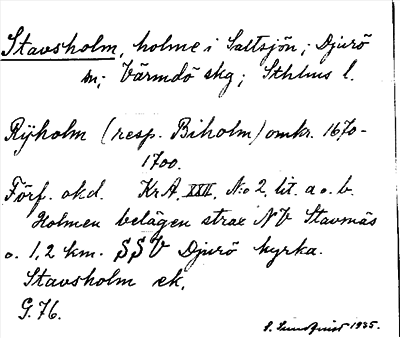 Stavsholm, holme i Saltsjön; Djurö
sn; Värmdö skg; Sthlms l.
Ryholm (resp. Biholm) omkr. 1670-
1700.
Förf. okd. KrA, XXII, N:o 2 lit. a o. b.
Holmen belägen strax NV Stavnäs
o. 1,2 km. SSV Djurö kyrka.
Stavsholm ek.
G. 76.
S. Lundqvist 1935.